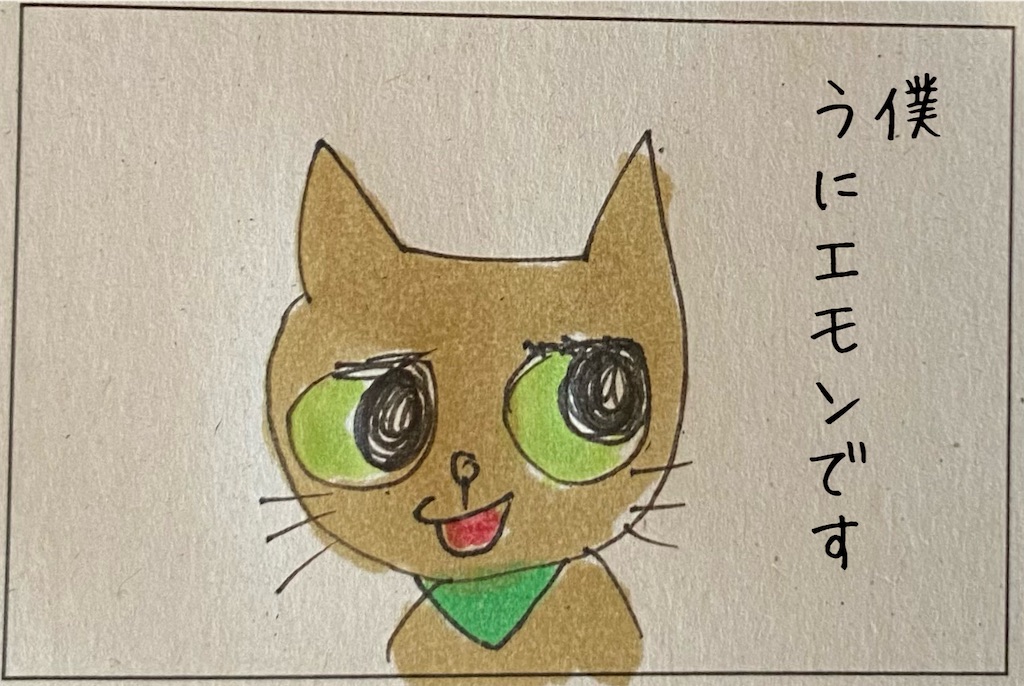 僕
うにエモンです